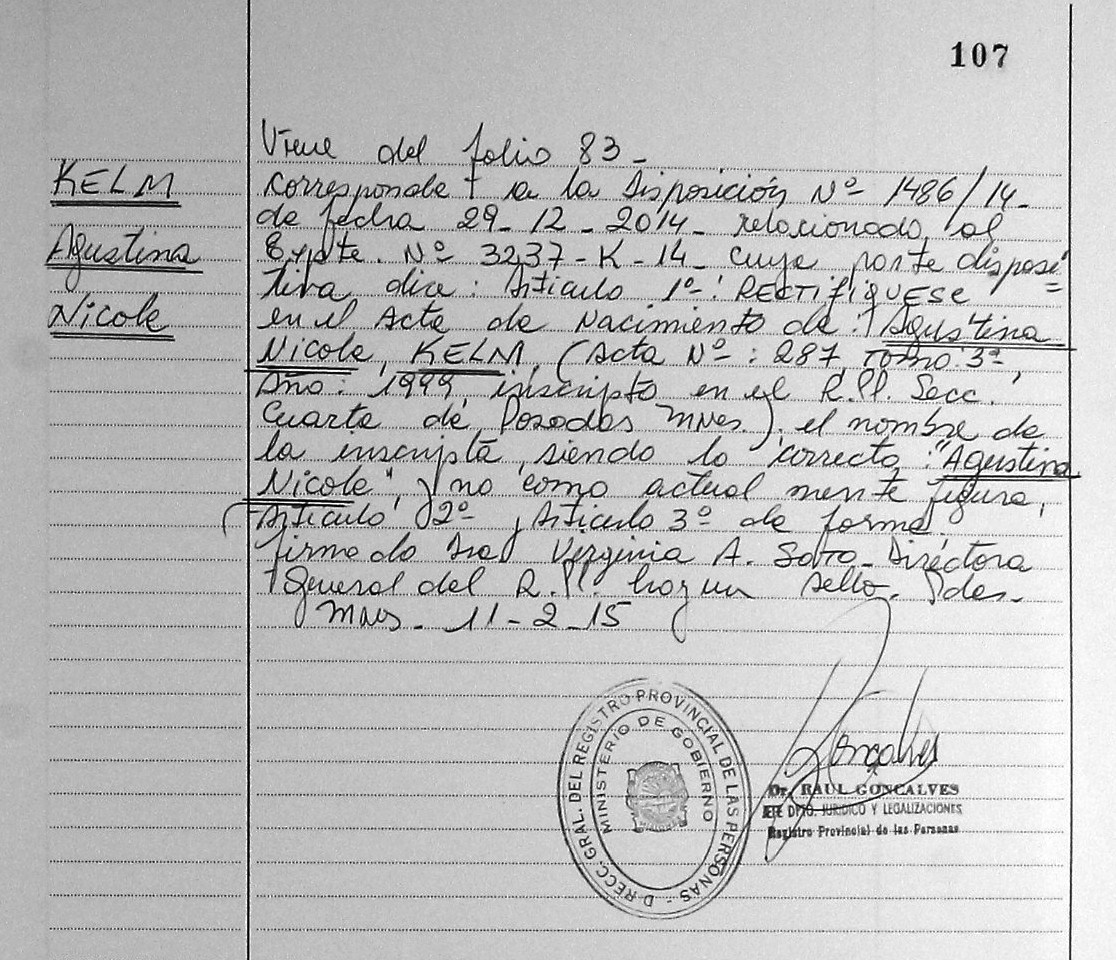 107
KELM
Agustina
Nicole
Viene del folio 83-
Corresponde a la Disposición Nº 1486/14-
de fecha 29-12-2014- relacionado al
Expte. Nº 3237-K-14- cuya parte disposi=
tiva dice: Artículo 1º: RECTIFIQUESE
en el Acta de Nacimiento de: Agustina
Nicole, KELM, (Acta Nº: 287, Tomo: 3º,
Año: 1999, inscripto en el R.P. Secc.
Cuarta de Posadas Mnes.), el nombre de
la inscripta, siendo lo correcto: "Agustina
Nicole", y no como actual mente figura,
Artículo 2º y Artículo 3º de forma
firmado Dra Verginia A. Soto- Directora
General del R.P. hay un sello- Pdas-
Mnes- 11-2-15
DIRECC. GRAL. DEL REGISTRO PROVINCIAL DE LAS PERSONAS -
MINISTERIO DE GOBIERNO
Gonçalves
Dr. RAUL GONCALVES
JEFE DPTO. JURIDICO Y LEGALIZACIONES
Registro Provincial de las Personas